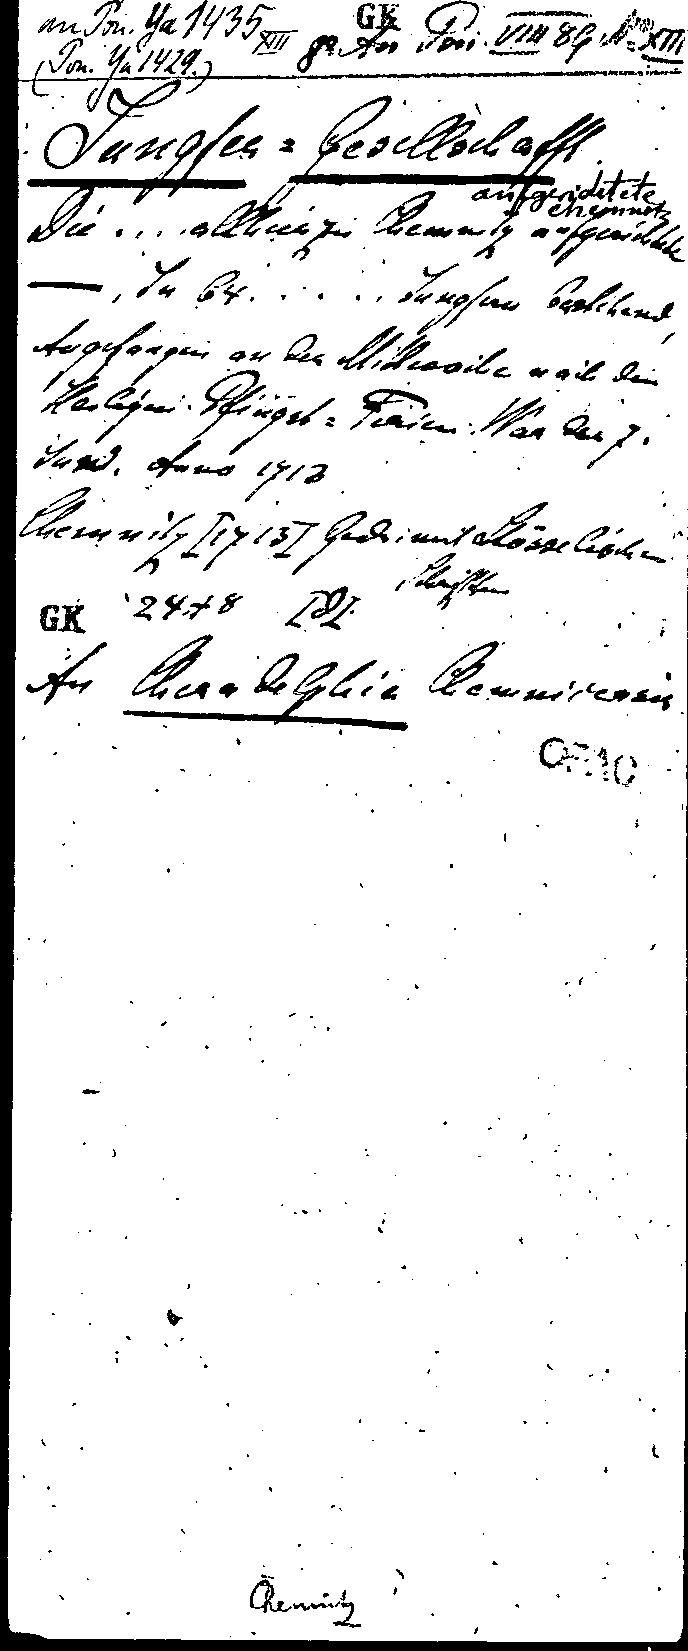 an Pon. Ya 1435 XIII
GK
gr. An Pon. VIII 89 No XIII
(Pon. Ya 1429.)
Jungfer = Gesellschafft
aufgerichtete
Chemnitz
Die ... allhier zu Chemnitz aufgerichtete
—, In 64. . . . . . Jungfern bestehend,
Angefangen an der Mittwoche nach den
Heiligen Pfingst = Ferien War der 7.
Juni. Anno 1713
Chemnitz [1713] Gedruckt Stösselischen
Schrifften
GK 24 + 8 [8].
An Chemnicensis
OPAC
Chemnitz